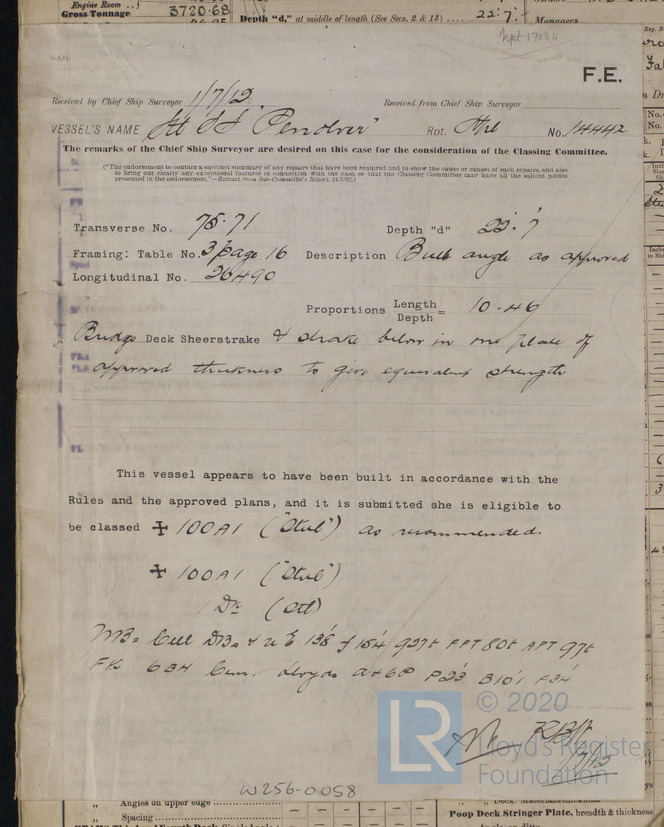 Engine Room
Gross Tonnage 3720.68
Depth "d," at middle of length (See Secs. 2 & 13) .... 22.7
Managers
F.E.
Received by Chief Ship Surveyor 1/7/12. Received from Chief Ship Surveyor
VESSEL'S NAME "Pendover" Rpt. No. 14442
The remarks of the Chief Ship Surveyor are desired on this case for the consideration of the Classing Committee.
("The endorsement to contain a succinct summary of any repairs that have been required and to show the cause or causes of such repairs, and also
to bring out clearly any exceptional features in connection with the case, so that the Classing Committee may have all the salient points
presented in the endorsement."—Extract from Sub-Committee's Report,
Transverse No. 78.71 Depth "d" 22.7
Framing: Table No. 3 page 16 Description Bulb angle as approved
Longitudinal No. 26490
Proportions Length/Depth = 10.46
Bridge Deck Sheerstrake & strake below in one plate of
approved thickness to give equivalent strength
This vessel appears to have been built in accordance with the
Rules and the approved plans, and it is submitted she is eligible to
be classed ✠ 100A1 ("Steel") as recommended.
✠ 100A1 ("Steel")
1 Dk (Stl)
Cell DB. 138 f 154 927t FPT 80t APT 97t
FK Cem. Lloyds A&CP P23 B101 F34
1/7/12
LR © 2020
Lloyd's Register
Foundation
W256-0058
" Angles on upper edge
" Spacing
Poop Deck Stringer Plate, breadth & thickness